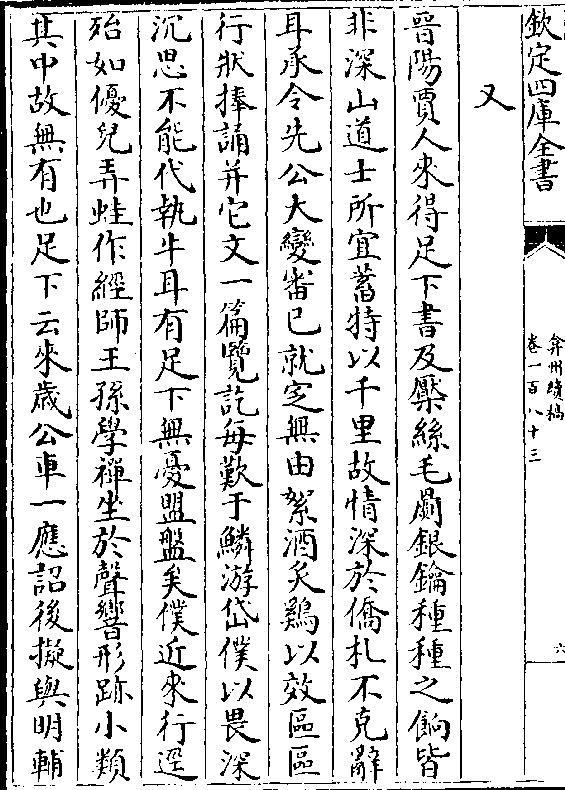 欽定四庫全書
弇州續稿
卷一百八十三
六
又
晉陽賈人來得足下書及檿絲毛罽銀鑰種種之餉皆
非深山道士所宜蓄特以千里故情深於僑札不克辭
耳承令先公大變畨已就窆無由絮酒炙鷄以效區區
行狀捧誦并它文一篇覽訖每歎于鱗游岱僕以畏深
沉思不能代執牛耳有足下無憂盟盤矣僕近來行逕
殆如優兒弄蛙作經師王孫學禪坐於聲響形跡小類
其中故無有也足下云來歲公車一應詔後擬與明輔